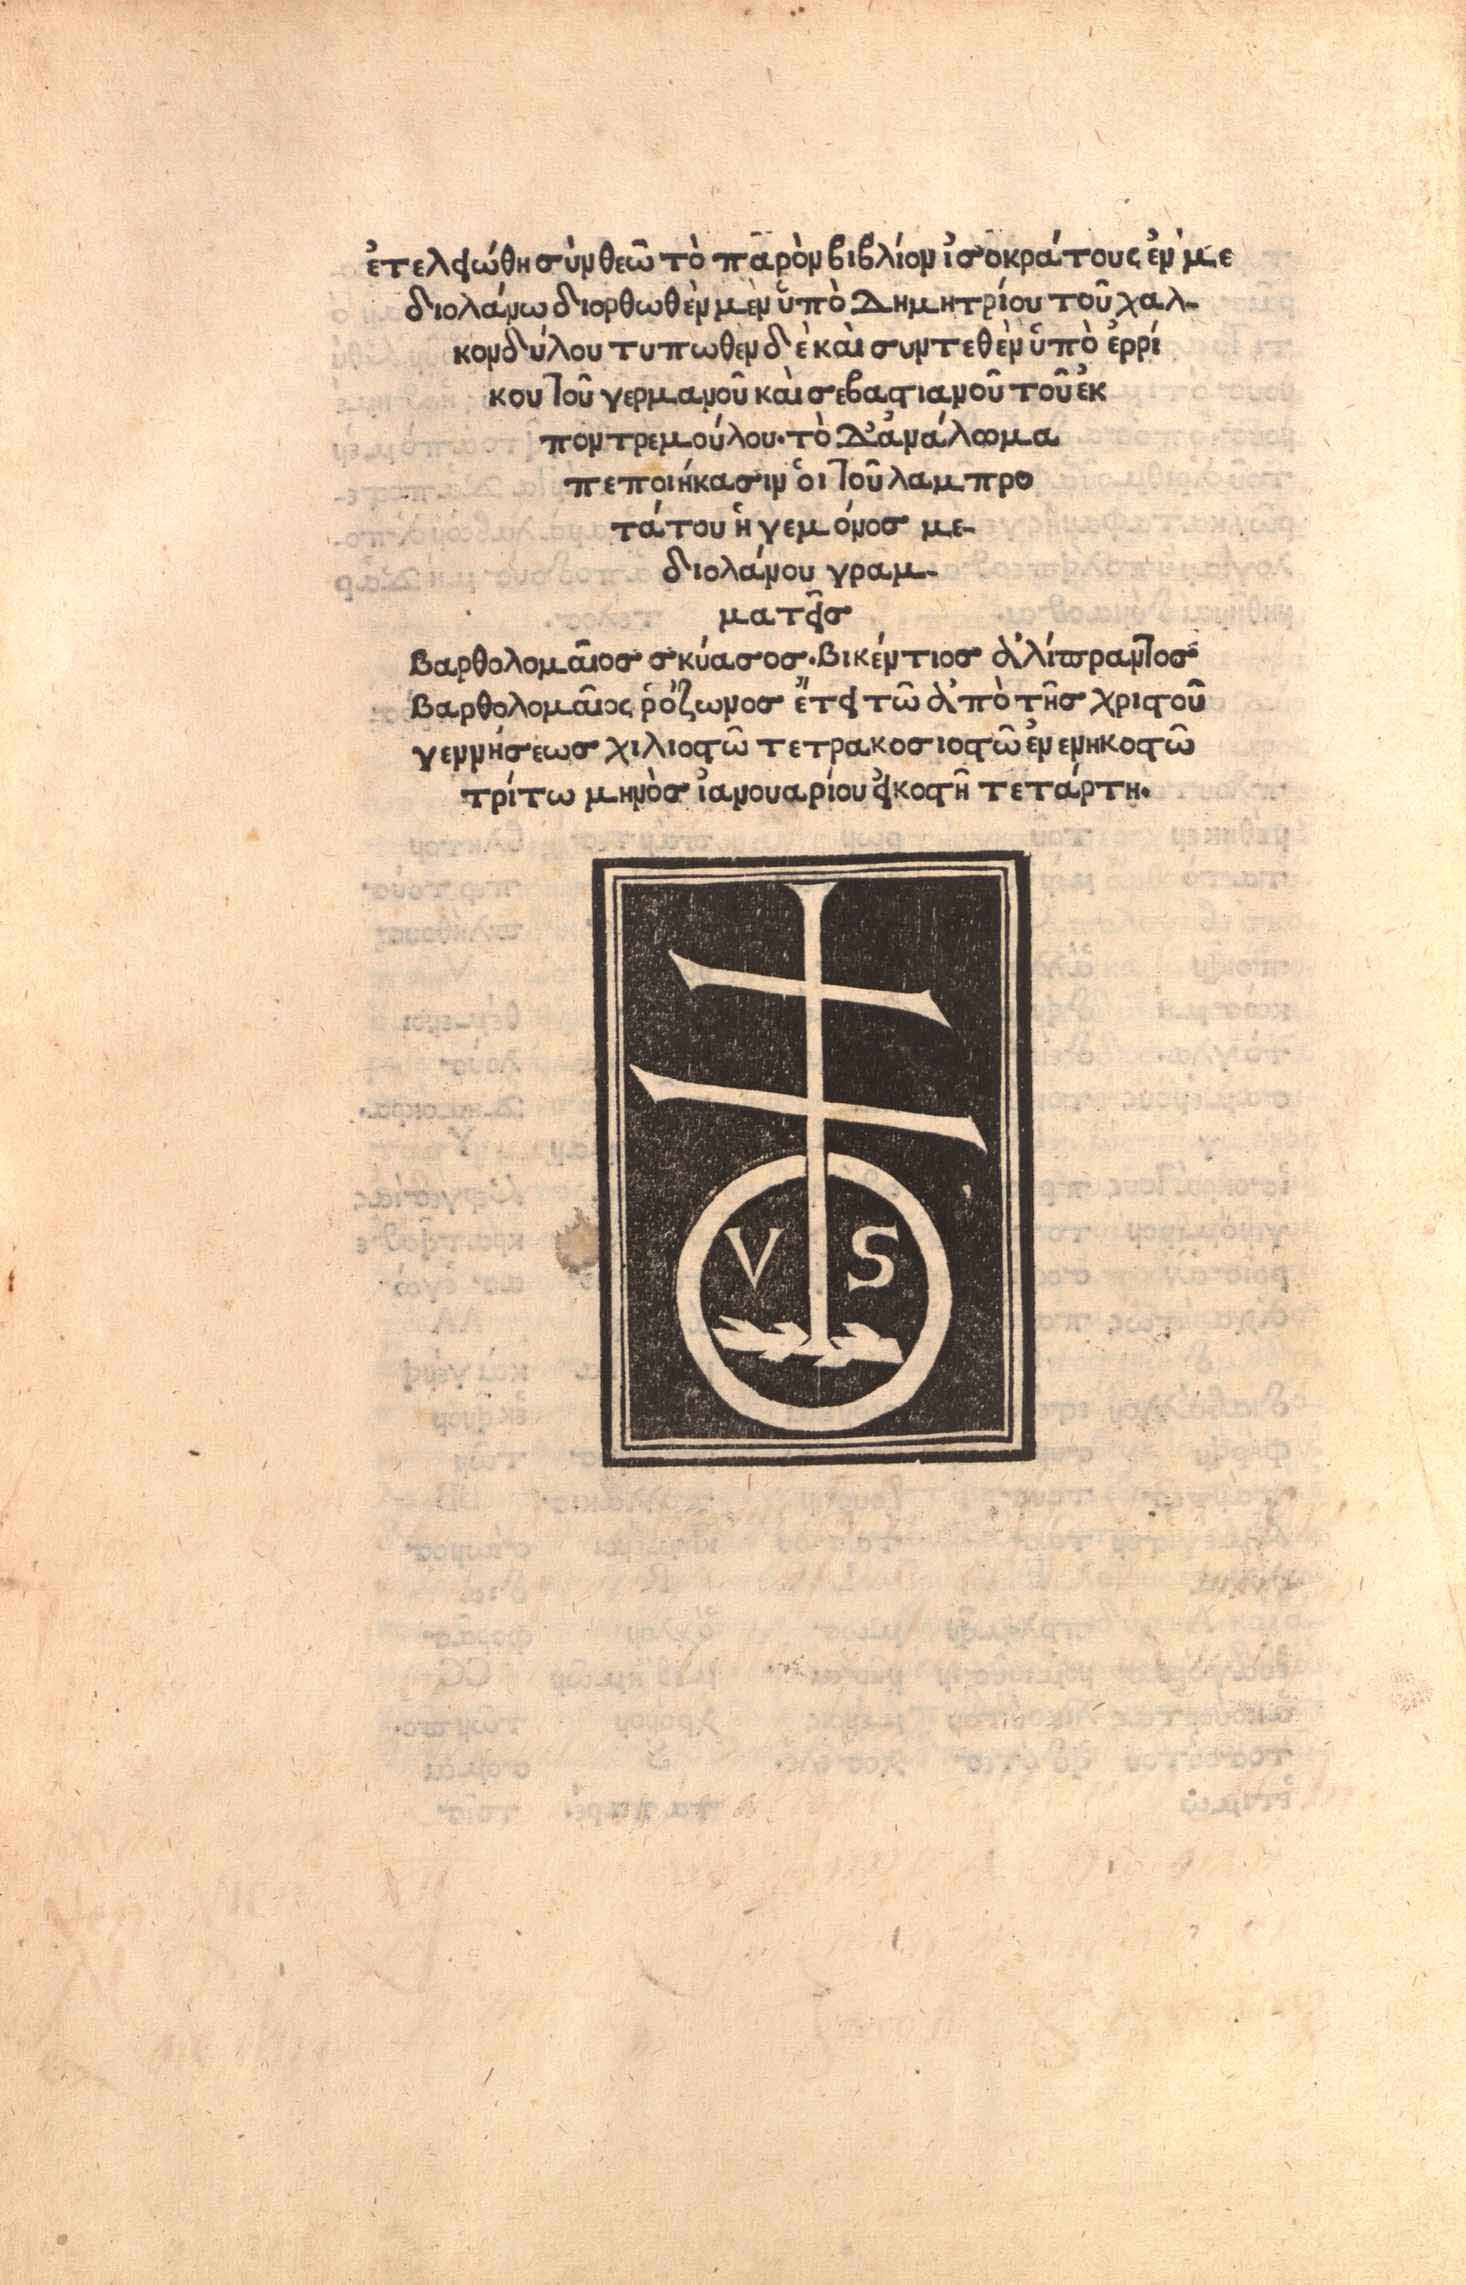 ἐτελειώθη σὺν θεῶ τὸ παρὸν βιβλίον ἰσοκράτους ἐν με
διολάνω διορθωθὲν μὲν ὑπὸ Δημητρίου τοῦ χαλ-
κονδύλου τυπωθεν δὲ καὶ συντεθὲν ὑπὸ ἐρρί
κου τοῦ γερμανοῦ καὶ σεβαστιανοῦ τοῦ ἐκ
ποντρεμούλου. τὸ Δ' ἀνάλωμα
πεποιήκασιν ὁι τοῦ λαμπρο
τάτου ἡγεμόνοσ με-
διολάνου γραμ-
ματεῖσ
Βαρθολομαῖοσ σκύασοσ. Βικέντιοσ ἀλίπραντοσ
Βαρθολομαῖος ῥόζωνοσ ἔτει τῶ ἀπὸ τῆσ χριστοῦ
γεννήσεωσ χιλιοστῶ τετρακοσιοστῶ ἐνενηκοστῶ
τρίτω μηνὸσ ἰανουαρίου εἰκοστῆ τετάρτη.
V S